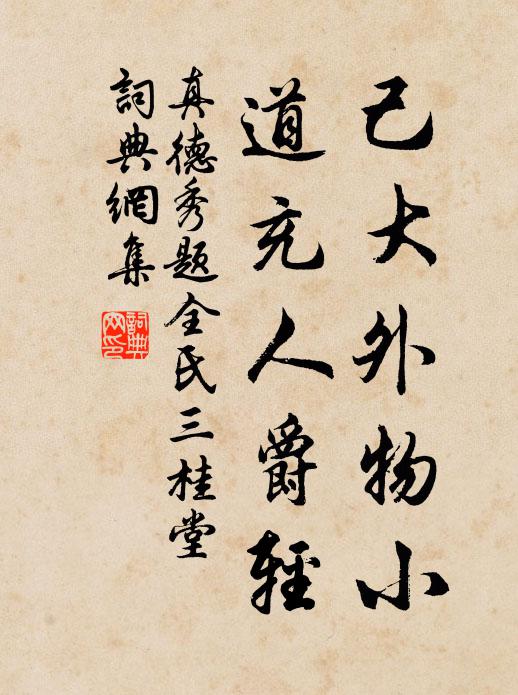 己大外物小
道充人爵輕
真德秀題全氏三桂堂
詞典網集
詞典網印